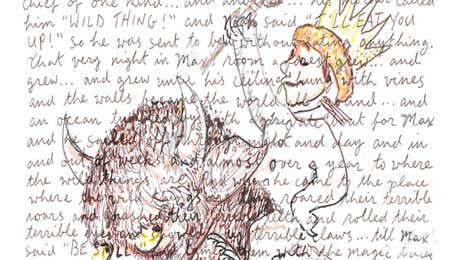 chief of one kind... and an... he... called
him "WILD THING!" and Max said I'LL EAT YOU
UP!" so he was sent to bed without eating anything.
That very night in Max room a forest grew... and
grew... and grew until his ceiling hung with vines
and the walls became the world all around... and
an ocean tumbled by with private boat for Max
and he sailed off through night and day and in
and out of weeks and almost over a year to where
the wild things and when he came to the place
where the wild things roared their terrible
roars and gnashed their terrible teeth and rolled their
terrible eyes and showed their terrible claws... till Max
said "BE STILL them with the magic